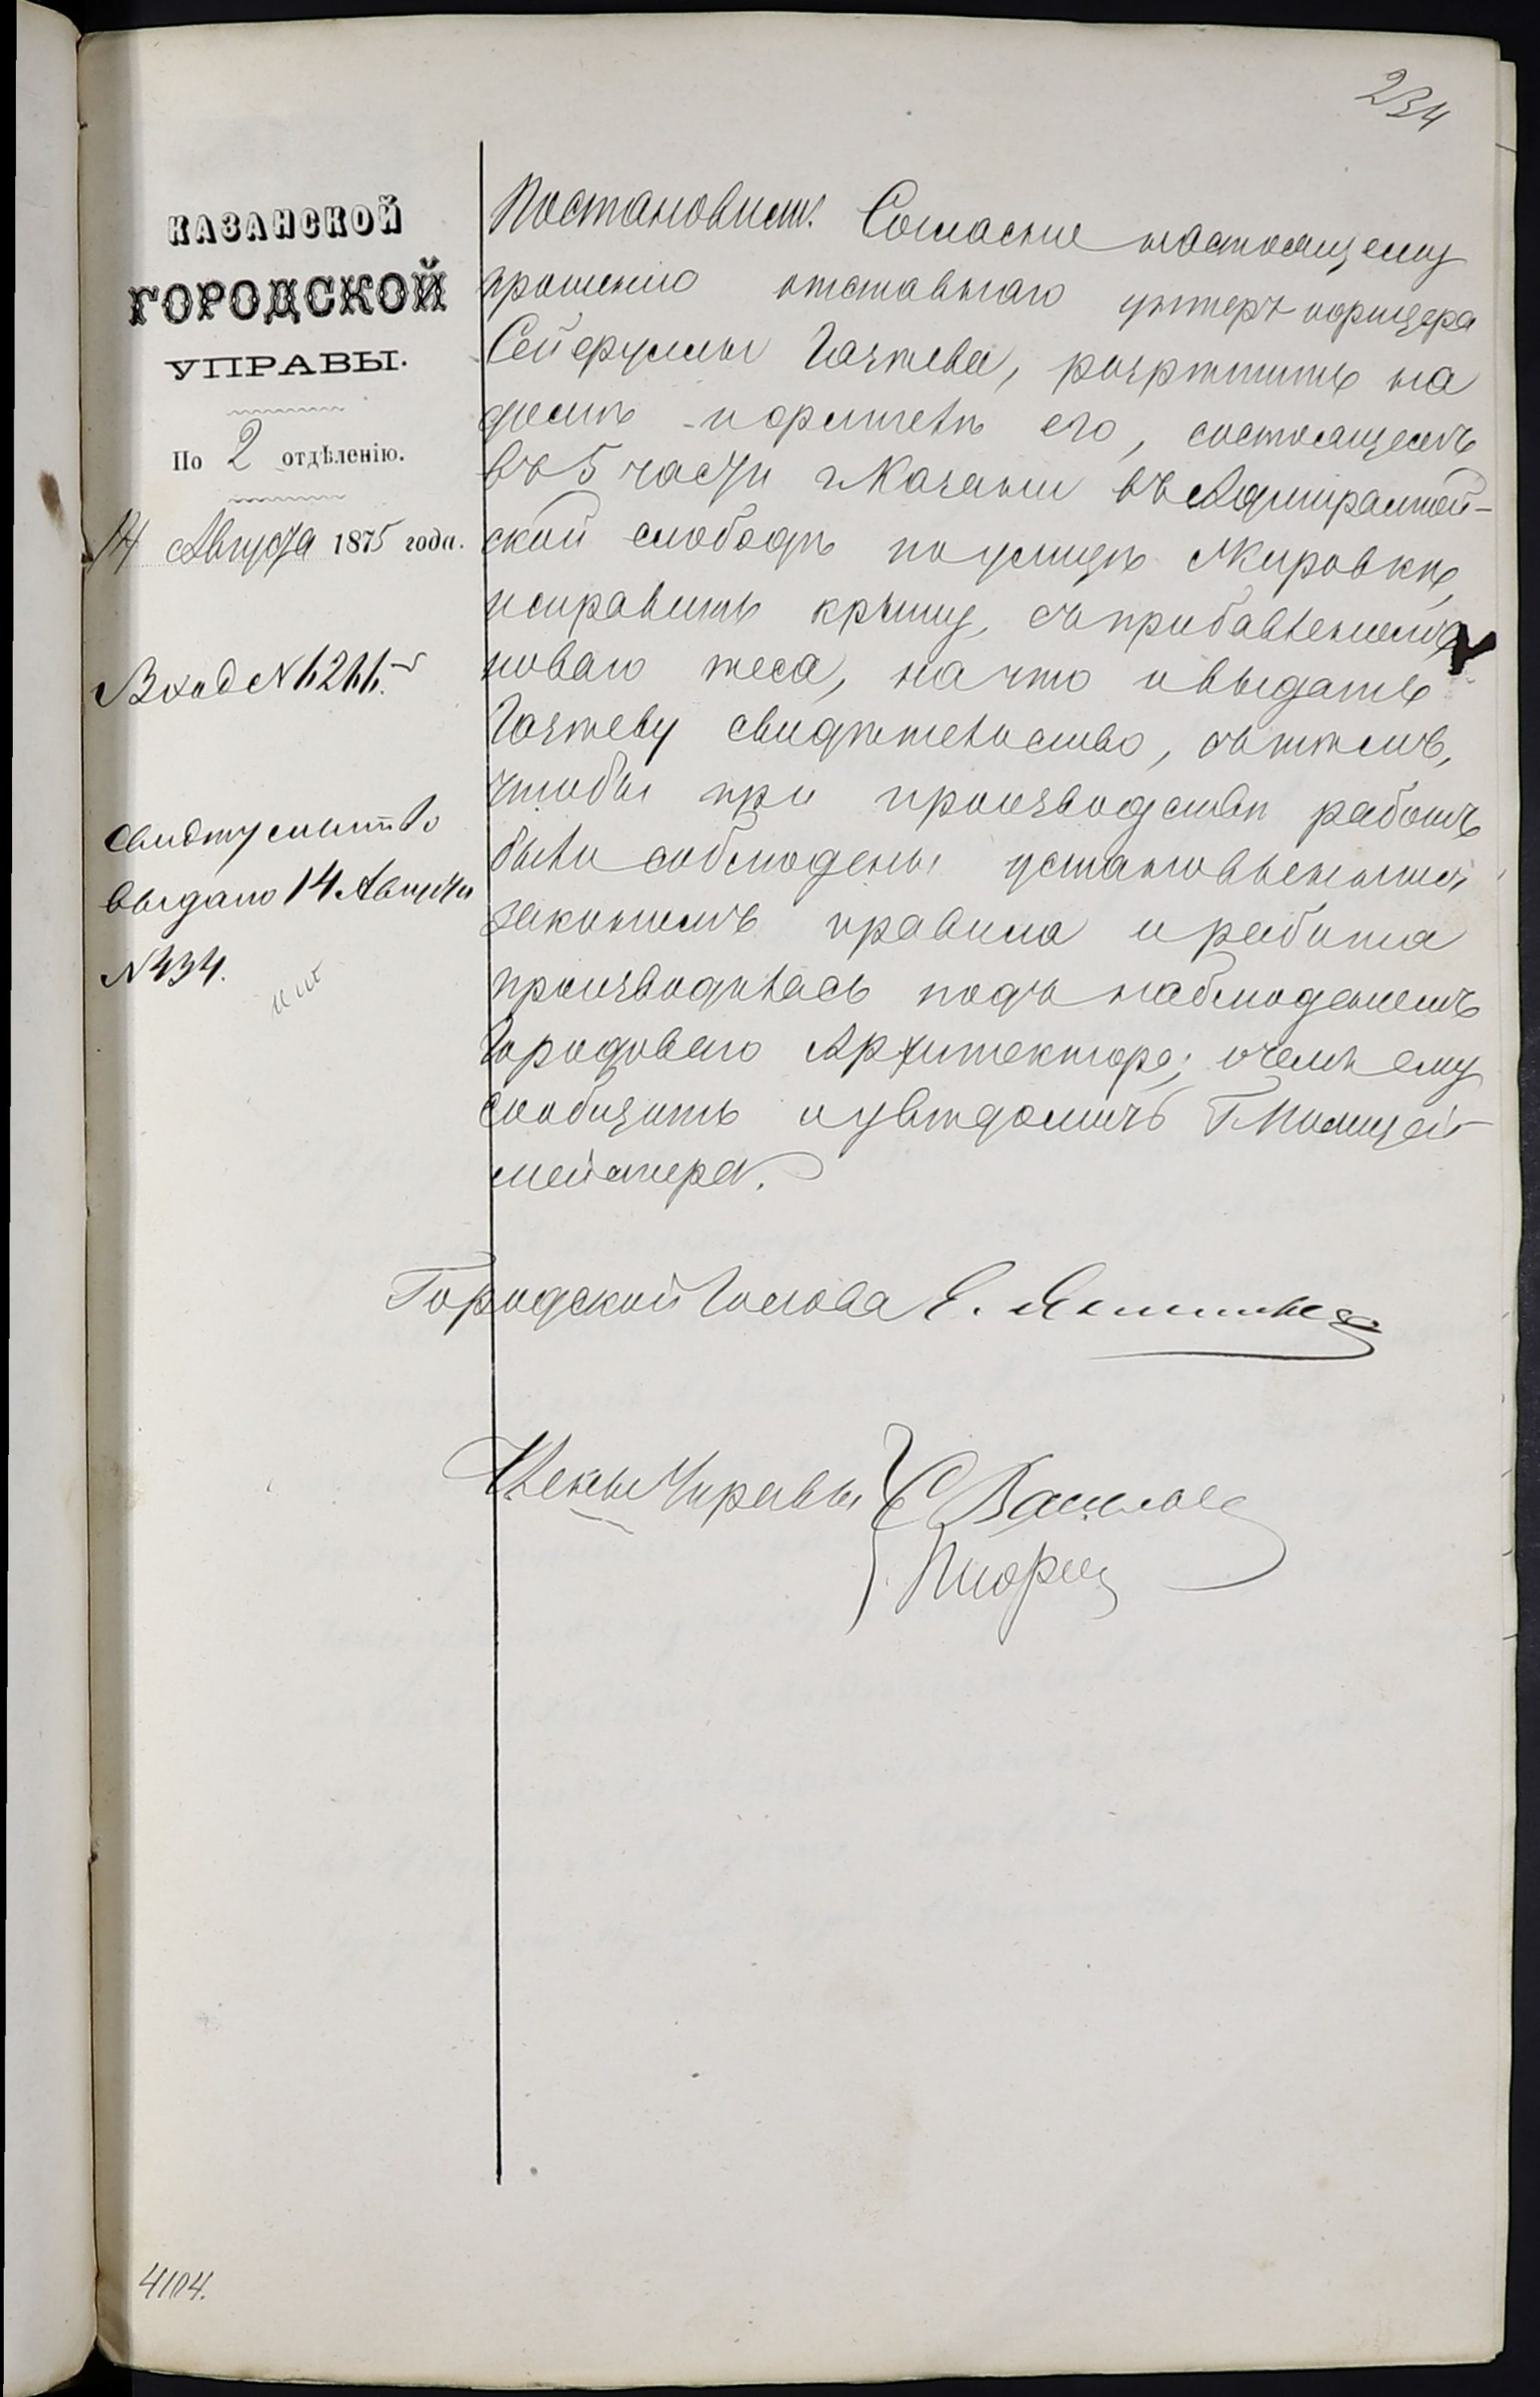 234
КАЗАНСКОЙ
ГОРОДСКОЙ
УПРАВЫ.
По 2 отдѣленію.
14 Августа 1875 года.
Вход №
Свидѣтельство
выдано 14 Августа
№ 434.
Постановили: Согласно настоящему
прошенію отставнаго унтеръ-офицера
Сейфуллы Газѣева, разрѣшить на
домѣ и флигелѣ его, состоящемъ
въ 5 части г. Казани въ Адмиралтей-
ской слободѣ по улицѣ Кировкѣ,
исправить крышу, съ прибавленіемъ
новаго теса, на что и выдать
Газѣеву свидѣтельство, съ тѣмъ,
чтобы при производствѣ работъ
были соблюдены установленныя
закономъ правила и работа
производилась подъ наблюденіемъ
Городоваго Архитектора; о чемъ ему
сообщить и увѣдомить Г. Полицей-
мейстера.
Городской Голова Е.
Члены Управы
4104.